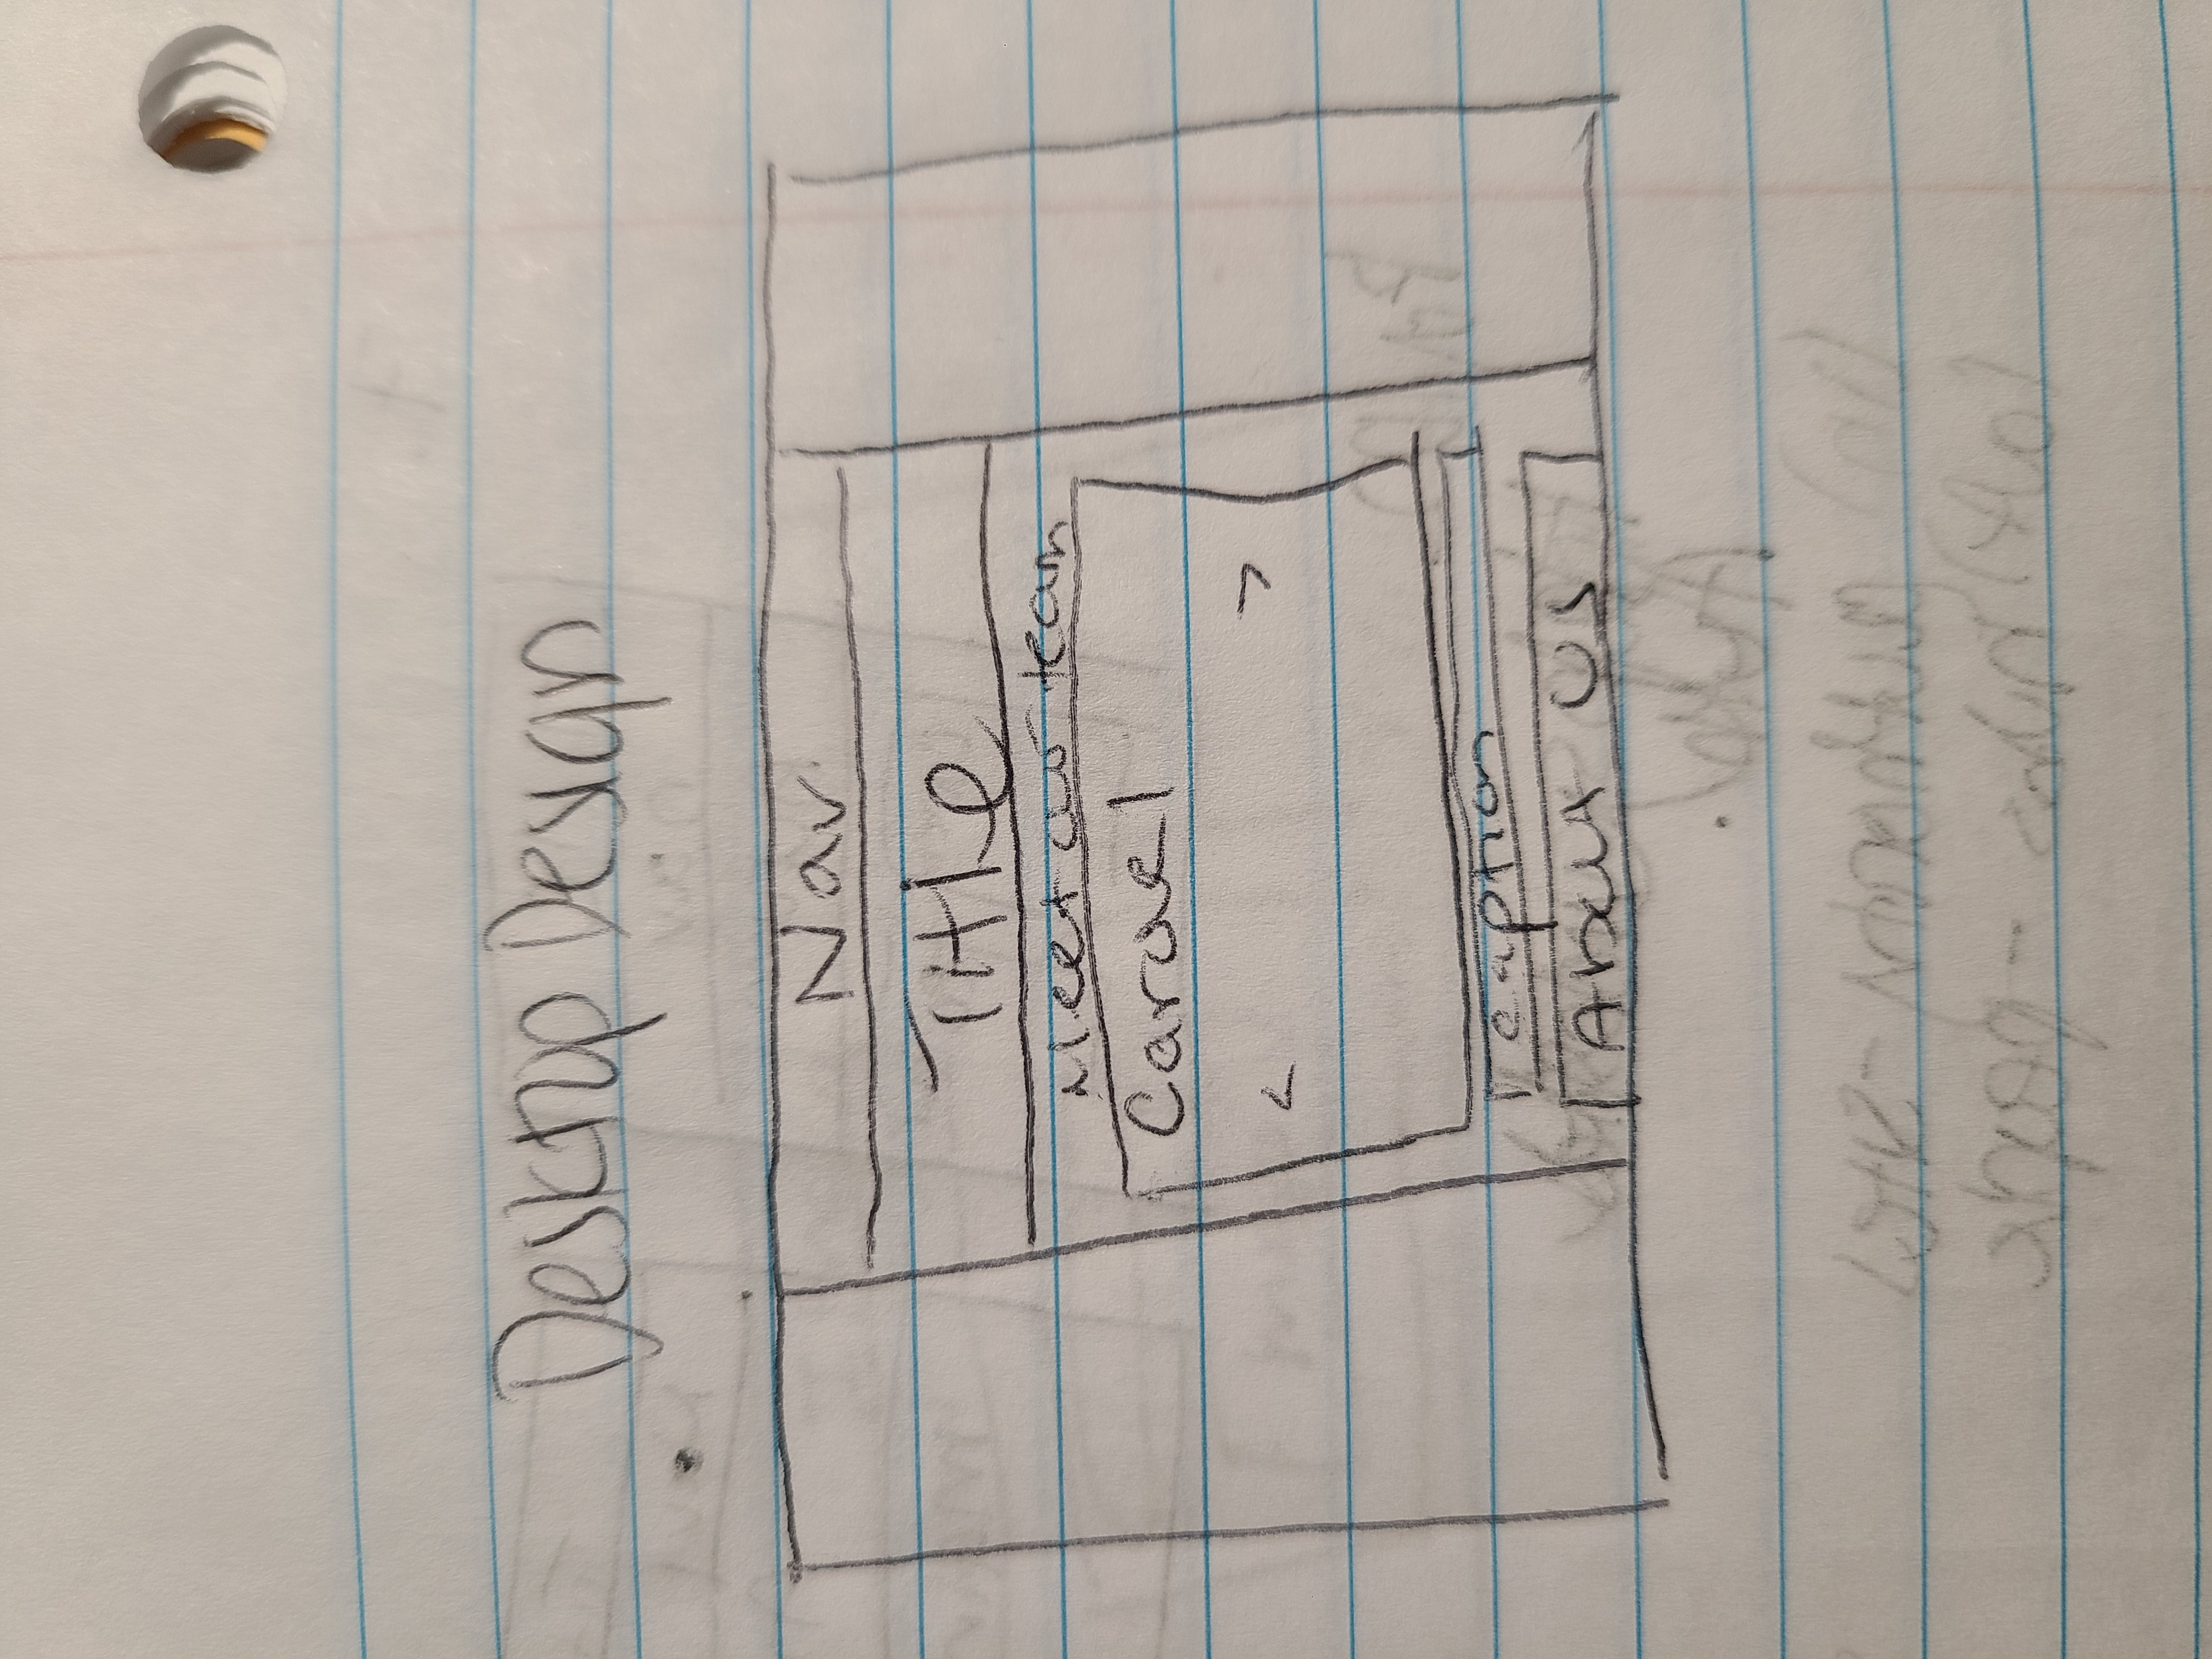 Desktop Design
Nav.
Title
Meet our team
Carouel
< >
Caption
About Us